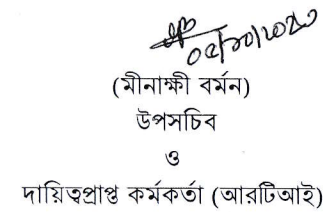 ০৫/১০/২০২০
(মীনাক্ষী বর্মন)
উপসচিব
ও
দায়িত্বপ্রাপ্ত কর্মকর্তা (আরটিআই)